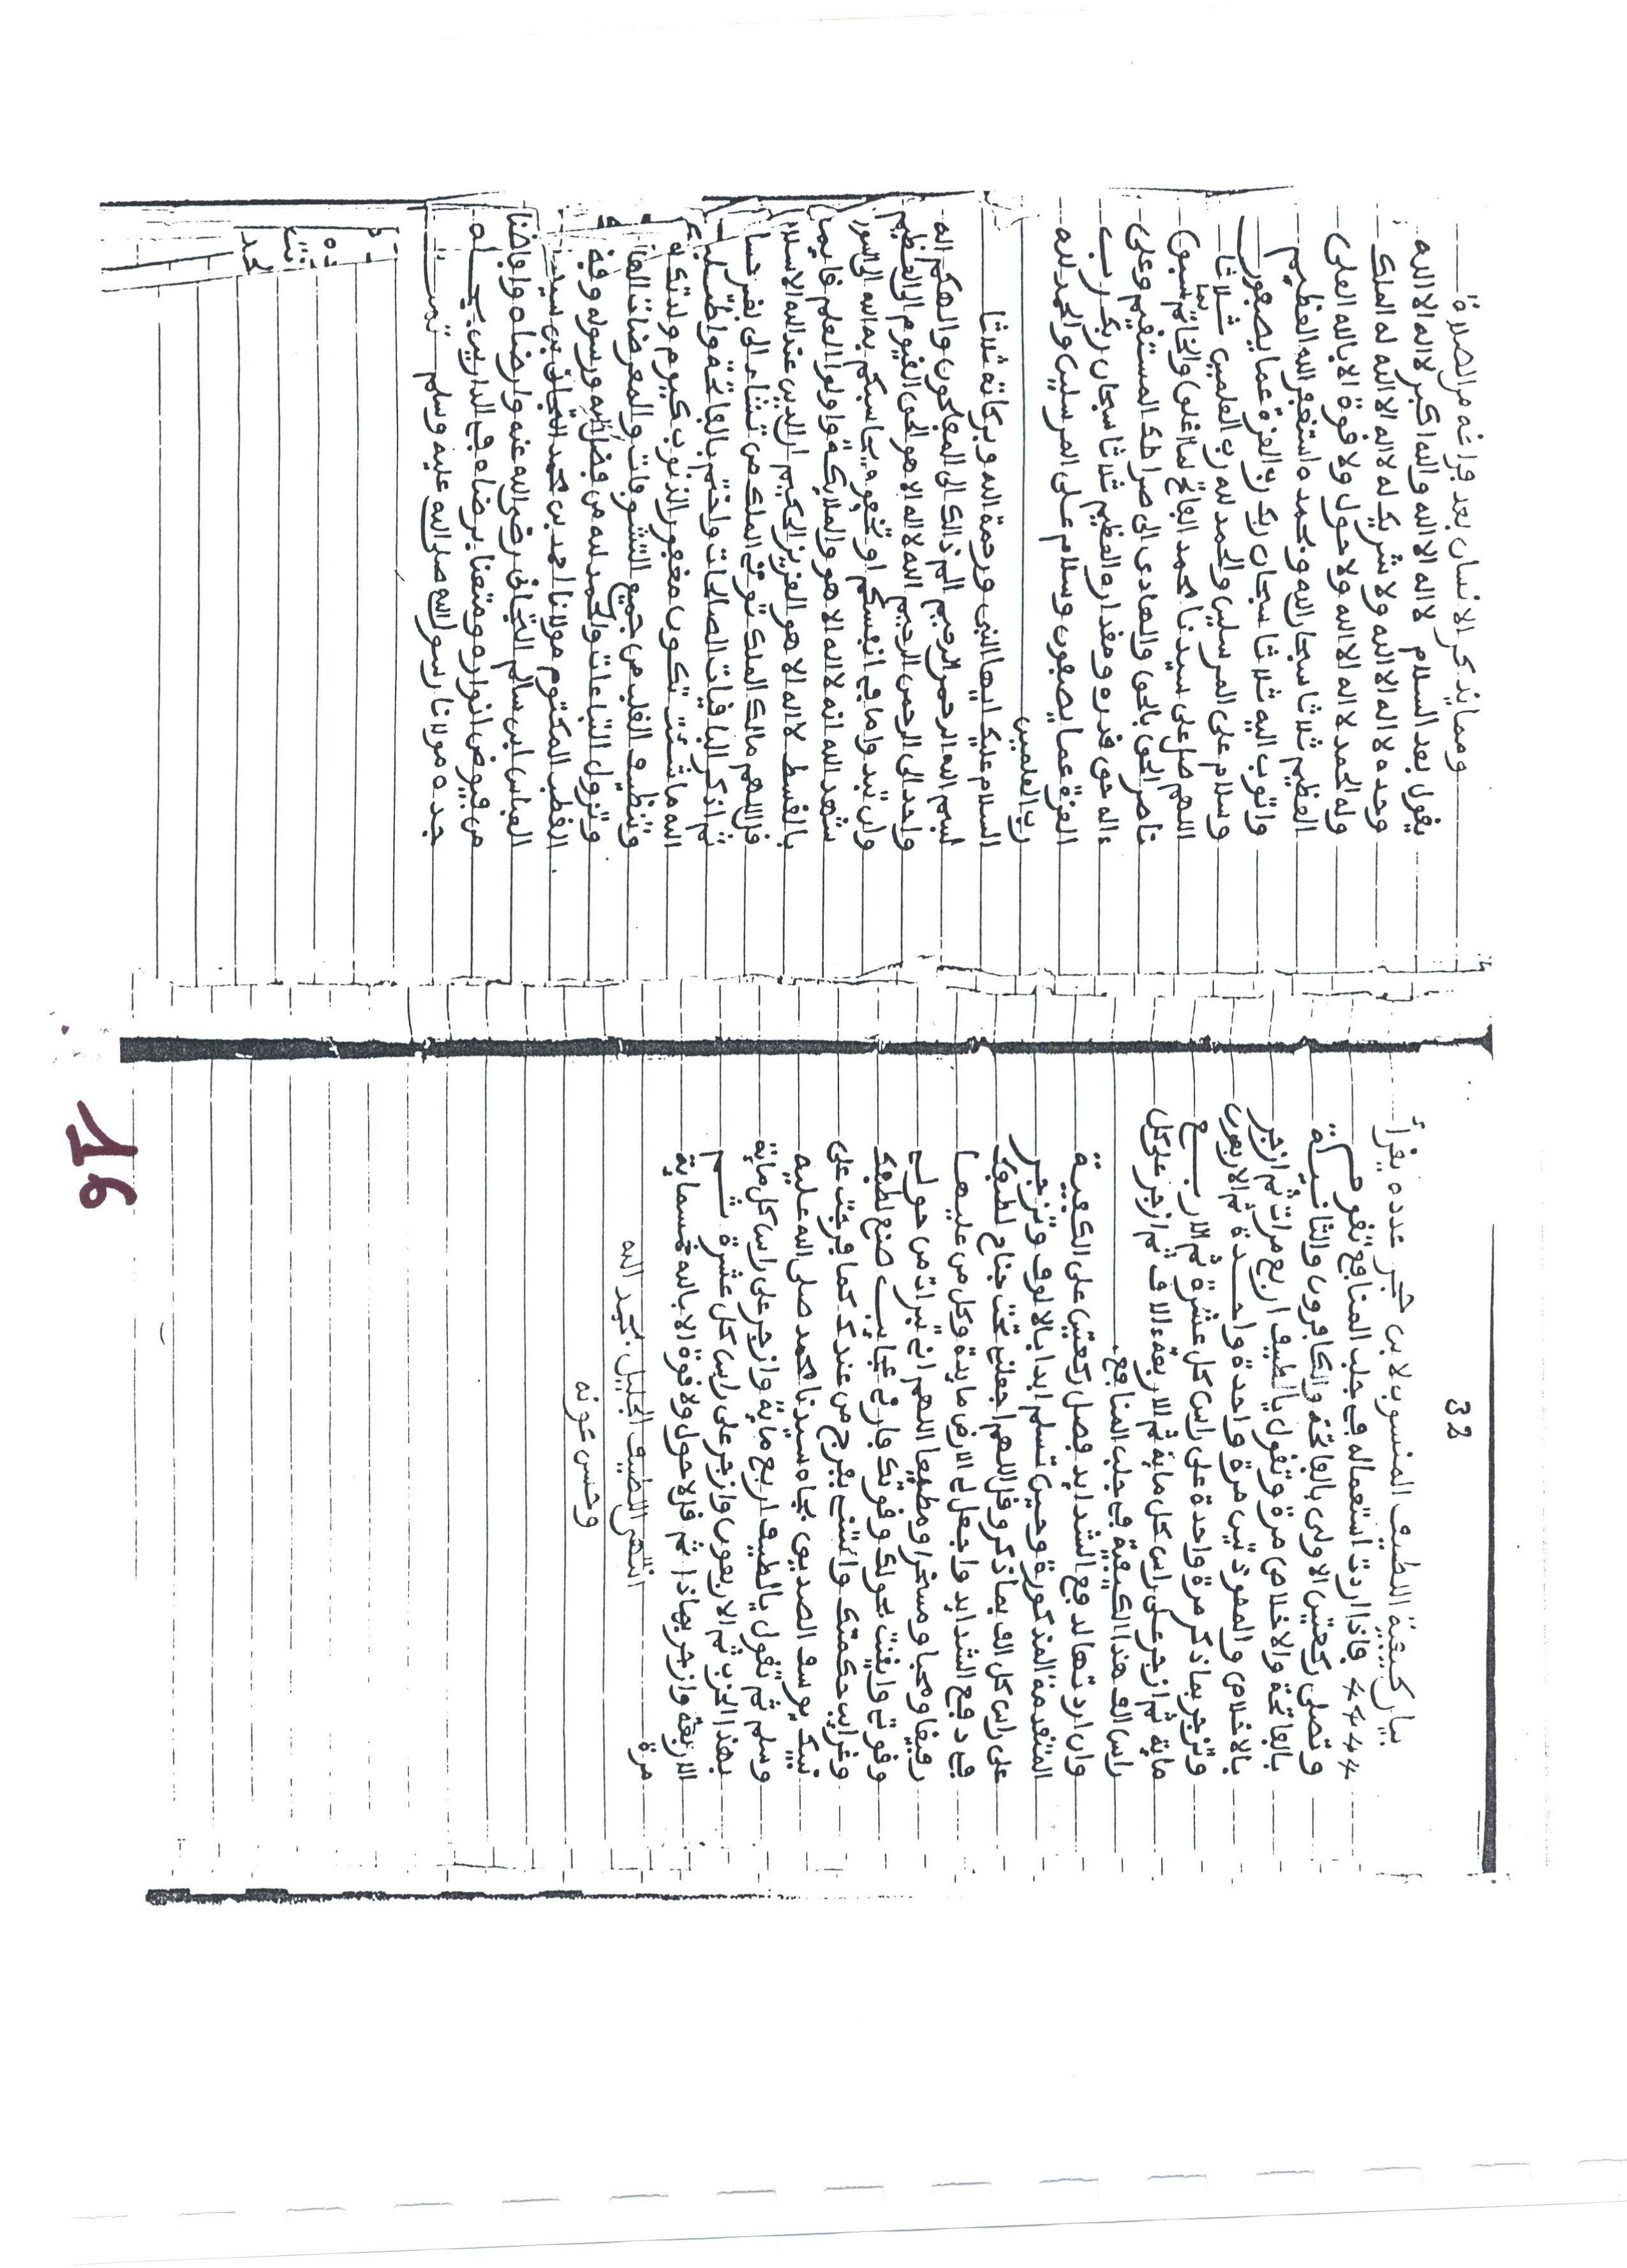 32
بيان كيفية اللطيف المنسوب لابن حجر عدده يقرأ
فاذا اردت استعماله في جلب المنافع تقوم
وتصلى ركعتين الاولى بالفاتحة والكافرون والثانية
بالفاتحة والاخلاص مرة وتقول يالطيف اربع مرات ثم ازجر
بالاخلاص والمعوذتين مرة واحدة واحدة ثم الاربعون
وتزجر بماذكر مرة واحدة على راس كل عشرة ثم الاربع
ماية ثم ازجر على راس كل ماية ثم الاربعة ءالاف ثم ازجر على كل
راس الف هذا الكيفية في جلب المنافع
وان اردتها لدفع الشدايد فصل ركعتين على الكيفية
المتقدمة المذكورة وحين تسلم ابدا بالالوف وتزجر
على راس كل الف بماذكر وقل اللهم اجعلني تحت جناح لطفك
في دفع الشدايد واجعل لى الارض مايدة وكل من عليها
رفيقا ومحبا ومسخرا ومطيعا اللهم اني تبرات من حولي
وقوتي وايقنت بحولك وقوتك فارني عجايب صنع لطفك
وغرايب حكمتك وائتني بفرج من عندك كما فرجت على
نبيك يوسف الصديق بجاه سيدنا محمد صلى الله عليه
وسلم ثم تقول يالطيف اربع ماية وازجر على راس كل ماية
بهذا الحزب ثم الاربعون وازجر على راس كل عشرة ثم
الاربعة وازجر بهاذا ثم قل لاحول ولاقوة الا بالله خمسماية
مرة
انتهى اللطيف الجليل بحمد الله
وحسن عونه
ومما يذكر الانسان بعد فراغه من الصلاة
يقول بعد السلام لااله الا الله والله اكبر لااله الا الله
وحده لااله الا الله ولا شريك له لااله الا الله له الملك
وله الحمد لااله الا الله ولا حول ولا قوة الا بالله العلى
العظيم ثلاثا سبحان الله وبحمده استغفر الله العظيم
واتوب اليه ثلاثا سبحان ربك رب العزة عما يصفون
وسلام على المرسلين والحمد لله رب العلمين ثلاثا
اللهم صل على سيدنا محمد الفاتح لما اغلق والخاتم لما سبق
ناصر الحق بالحق والهادى الى صراطك المستقيم وعلى
ءاله حق قدره ومقداره العظيم ثلاثا سبحان ربك رب
العزة عما يصفون وسلام على المرسلين والحمد لله
رب العلمين
السلام عليك ايها النبى ورحمة الله وبركاته ثلاثا
بسم الله الرحمن الرحيم الم ذالك الى المفلحون والهكم اله
واحد الى الرحمن الرحيم الله لااله الا هو الحى القيوم الى العظيم
وان تبدوا ما في انفسكم او تخفوه يحاسبكم به الله الى السورة
شهد الله انه لااله الا هو والملايكة واولوا العلم قايما
بالقسط لااله الا هو العزيز الحكيم ان الدين عند الله الاسلام
قل اللهم مالك الملك توتي الملك من تشاء الى بغير حساب
ثم اذكر الباقيات الصالحات واختم بالفاتحة واطلب
الله ما شئت تكون مغفور الذنوب كيوم ولدتك
وتنظف القلب من جميع
وتزول التباعات والحمد لله من فضل الله ورسوله وفي
القطب المكتوم مولانا احمد بن محمد التجاني بن سيدنا
العباس ابن سالم التجاني رضي الله عنه وارضاه وافاضنا
من فيوض انواره ومتعنا برضاه في الدارين بجاه
جده مولانا رسول الله صلى الله عليه وسلم تمت
16